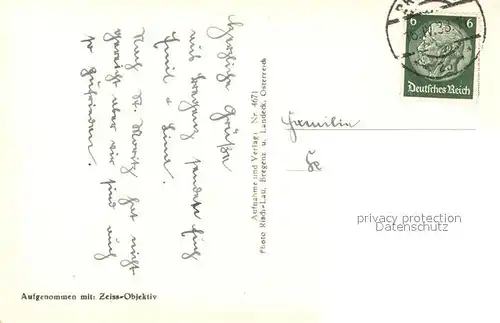 Herzliche Grüße
aus Bregenz senden Euch
Emil + Line.
Nach St. Moritz hat nicht
gereicht aber wir sind auch
so zufrieden.
Aufnahme und Verlag: Nr. 4671
Photo Risch-Lau, Bregenz u. Landeck, Österreich
Aufgenommen mit: Zeiss-Objektiv
6 6
Deutsches Reich
Familie
privacy protection
Datenschutz